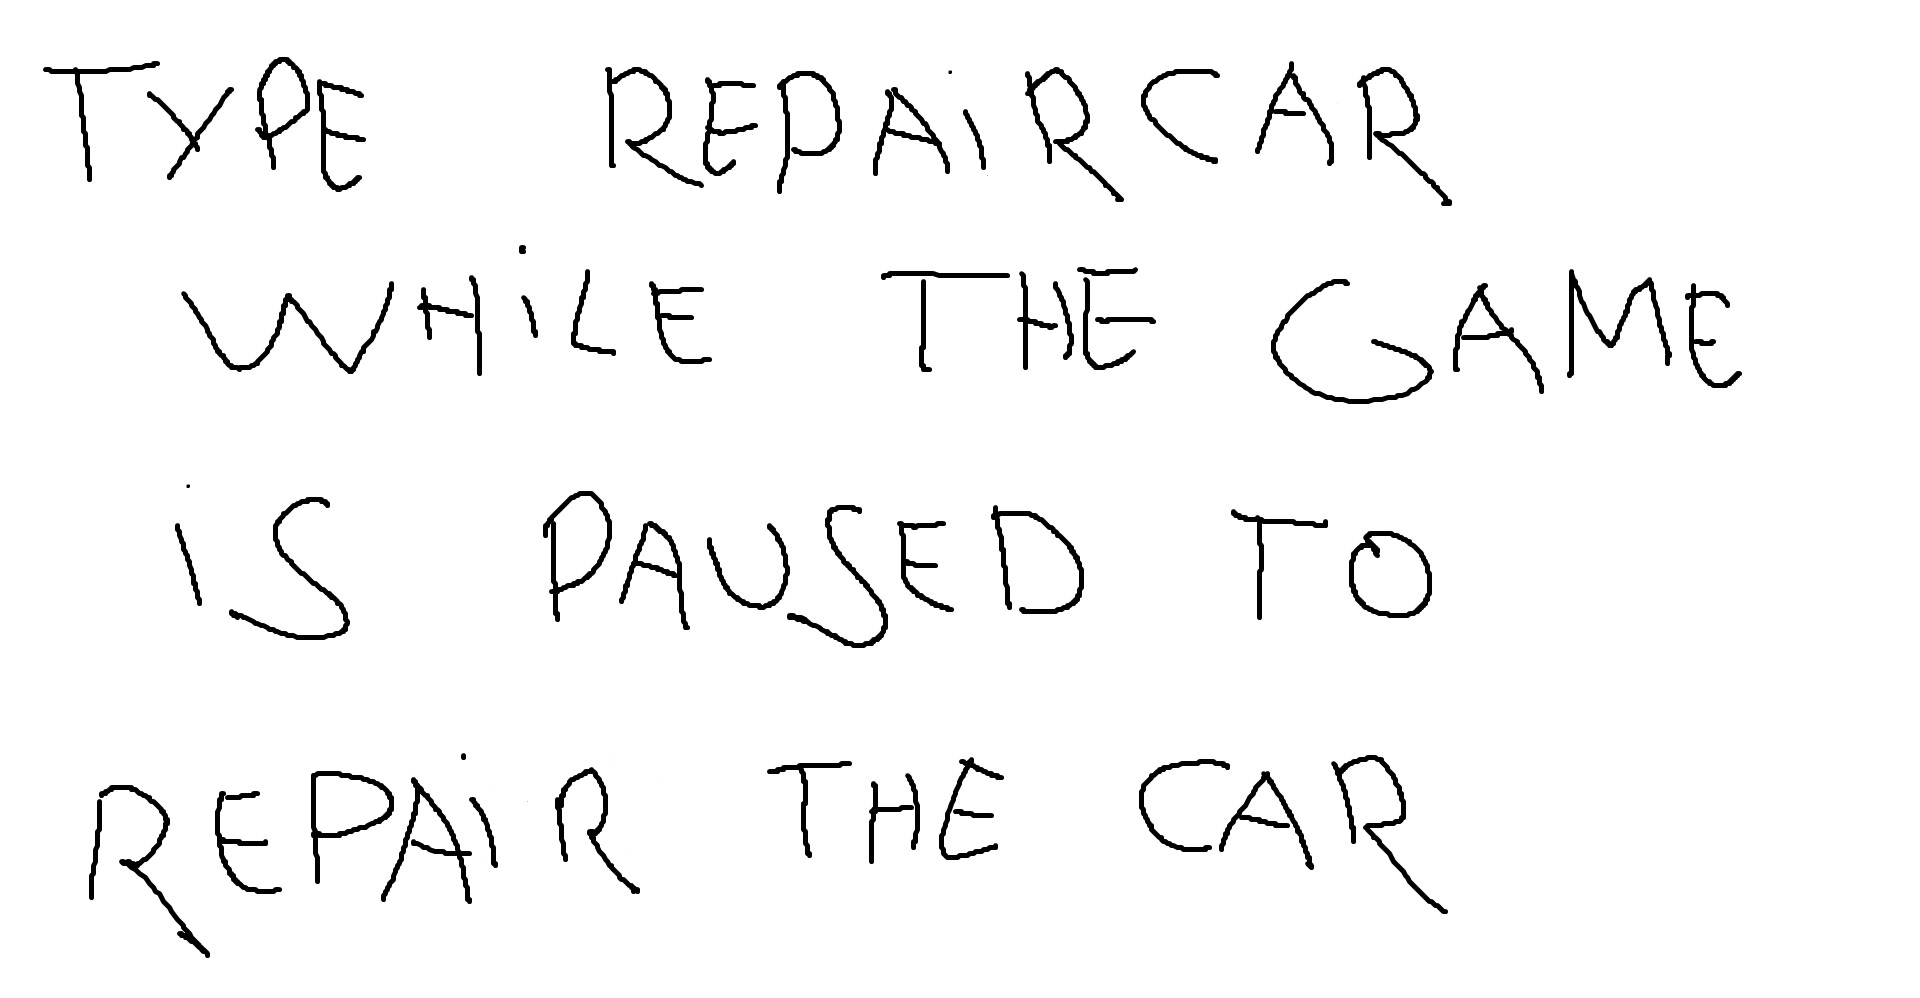 TYPE REPAiRCAR
WHiLE THE GAME
iS PAUSED TO
REPAiR THE CAR